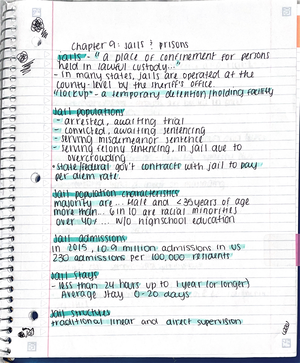 Chapter 9: Jails & prisons
Jails - "a place of confinement for persons
held in lawful custody..."
- In many states, jails are operated at the
county-level by the sheriff's office
"lockup" - a temporary detention/holding facility
Jail populations
- arrested, awaiting trial
- convicted, awaiting sentencing
- serving misdemeanor sentence
- serving felony sentencing, in jail due to
overcrowding
* state/federal gov't contracts with jail to pay
per diem rate.
Jail population characteristics
majority are... Male and <35 years of age
more than... 6 in 10 are racial minorities
over 40% ... w/o highschool education
Jail admissions
in 2015, 10.9 million admissions in US
230 admissions per 100,000 residents
Jail stays
- less than 24 hours up to 1 year (or longer)
Average stay 0-20 days
Jail structures
traditional linear and direct supervision